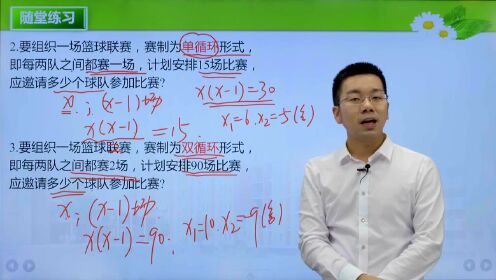 随堂练习
2.要组织一场篮球联赛，赛制为单循环形式，
即每两队之间都赛一场，计划安排15场比赛，
应邀请多少个球队参加比赛？
x；(x-1)场
x(x-1)=30
x(x-1)/2=15
x₁=6.x₂=-5(舍)
3.要组织一场篮球联赛，赛制为双循环形式，
即每两队之间都赛2场，计划安排90场比赛，
应邀请多少个球队参加比赛？
x；(x-1)场.
x(x-1)=90；
x₁=10.x₂=-9(舍)